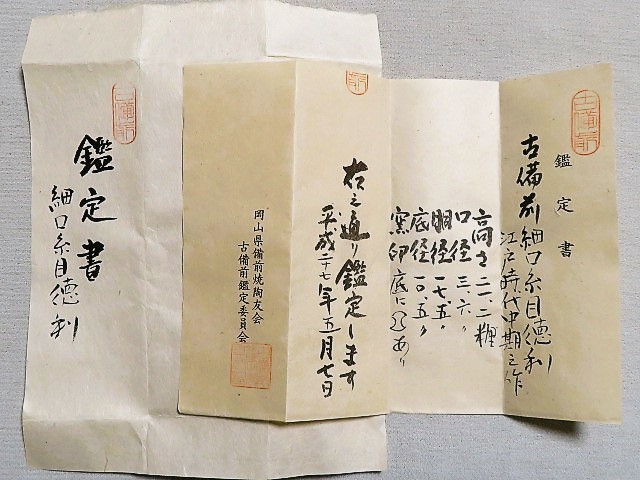 鑑定書
古備前細口糸目徳利
江戸時代中期之作
高さ 二一.二糎
口径 三.六〃
胴径 一七.五〃
底径 一〇.五〃
窯印 底に あり
右之通り鑑定します
平成二十七年五月七日
岡山県備前焼陶友会
古備前鑑定委員会
鑑定書
細口糸目徳利
古備前